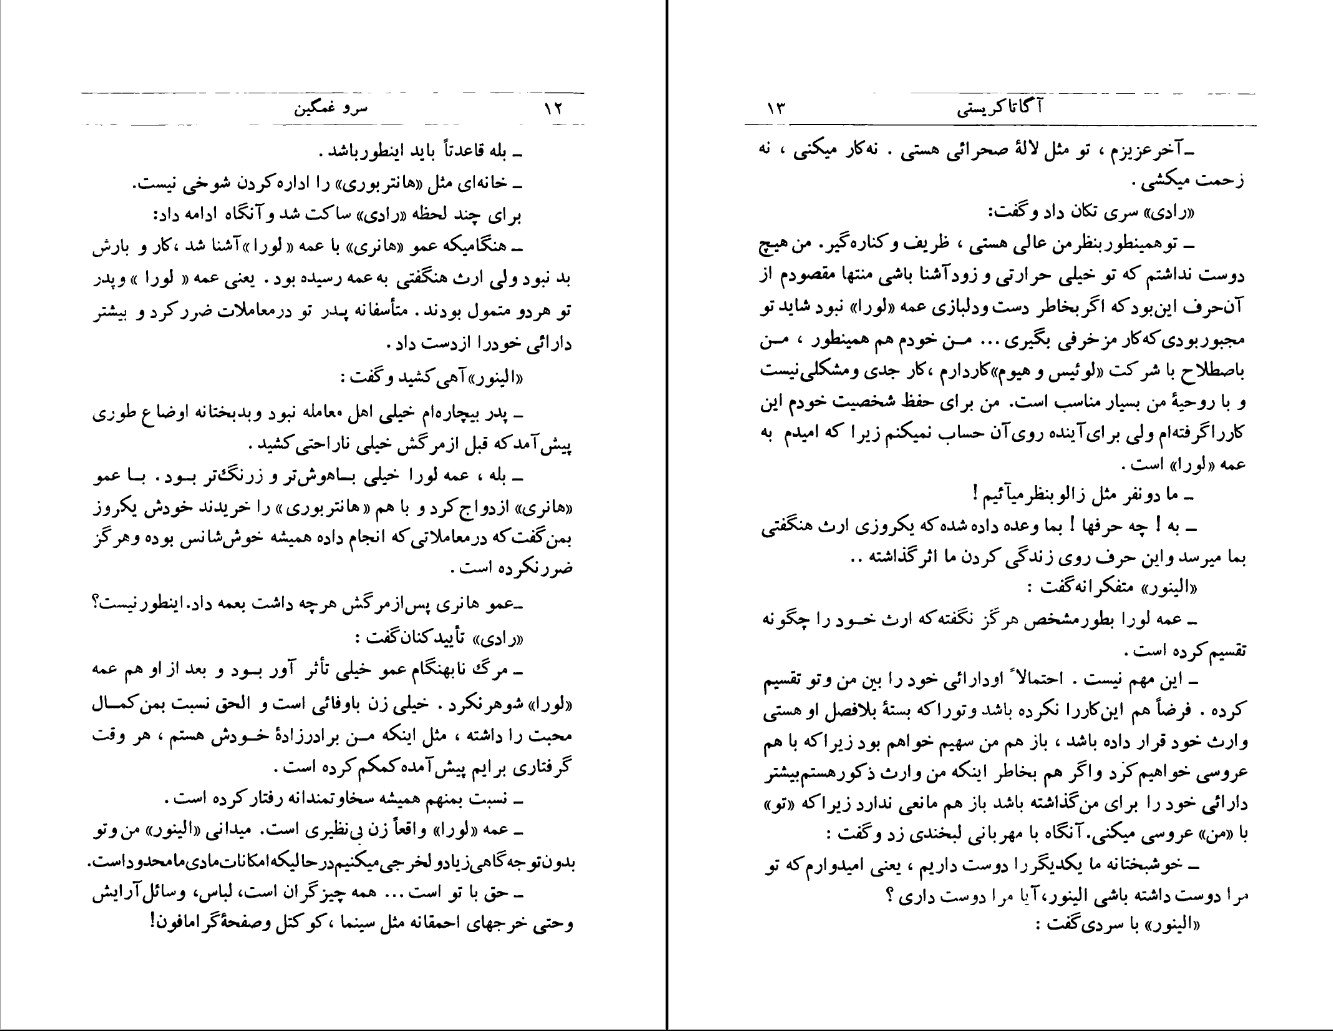 ۱۲ سرو غمگین
ــ بله قاعدتاً باید اینطورباشد .
ــ خانه‌ای مثل «هانتربوری» را اداره‌کردن شوخی نیست.
برای چند لحظه «رادی» ساکت شد و آنگاه ادامه داد:
ــ هنگامیکه عمو «هانری» با عمه « لورا »آشنا شد ،کار و بارش
بد نبود ولی ارث هنگفتی به عمه رسیده بود . یعنی عمه « لورا » و پدر
تو هردو متمول بودند . متأسفانه پدر تو درمعاملات ضررکرد و بیشتر
دارائی خودرا ازدست داد .
«الینور» آهی کشید و گفت :
ــ پدر بیچاره‌ام خیلی اهل معامله نبود و بدبختانه اوضاع طوری
پیش آمدکه قبل از مرگش خیلی ناراحتی کشید .
ــ بله ، عمه لورا خیلی باهوش‌تر و زرنگ‌تر بود . با عمو
«هانری» ازدواج کرد و با هم «هانتربوری» را خریدند خودش یکروز
بمن گفت که درمعاملاتی که انجام داده همیشه خوش‌شانس بوده و هرگز
ضررنکرده است .
ــ عمو هانری پس ازمرگش هرچه داشت بعمه داد. اینطور نیست؟
«رادی» تأیید کنان گفت :
ــ مرگ نابهنگام عمو خیلی تأثر آور بود و بعد از او هم عمه
«لورا» شوهر نکرد . خیلی زن باوفائی است و الحق نسبت بمن کمال
محبت را داشته ، مثل اینکه من برادرزادۀ خودش هستم ، هر وقت
گرفتاری برایم پیش آمده کمکم کرده است .
ــ نسبت بمنهم همیشه سخاوتمندانه رفتار کرده است .
ــ عمه «لورا» واقعاً زن بی‌نظیری است. میدانی «الینور» من و تو
بدون توجه گاهی زیاد ولخرجی میکنیم درحالیکه امکانات مادی ما محدود است.
ــ حق با تو است ... همه چیز گران است، لباس، وسائل آرایش
وحتی خرجهای احمقانه مثل سینما ،کوکتل و صفحۀ گرامافون!
آگاتا کریستی ۱۳
ــ آخر عزیزم ، تو مثل لالۀ صحرائی هستی . نه کار میکنی ، نه
زحمت میکشی .
«رادی» سری تکان داد و گفت:
ــ تو همینطور بنظر من عالی هستی ، ظریف و کناره گیر . من هیچ
دوست نداشتم که تو خیلی حرارتی و زود آشنا باشی منتها مقصودم از
آن حرف این بود که اگر بخاطر دست ودلبازی عمه «لورا» نبود شاید تو
مجبور بودی که کار مزخرفی بگیری ... من خودم هم همینطور ، من
باصطلاح با شرکت «لوئیس و هیوم»کاردارم ،کار جدی ومشکلی نیست
و با روحیۀ من بسیار مناسب است. من برای حفظ شخصیت خودم این
کاررا گرفته‌ام ولی برای آینده روی آن حساب نمیکنم زیرا که امیدم به
عمه «لورا» است .
ــ ما دو نفر مثل زالو بنظر میآئیم !
ــ به ! چه حرفها ! بما وعده داده شده که یکروزی ارث هنگفتی
بما میرسد و این حرف روی زندگی کردن ما اثر گذاشته ..
«الینور» متفکرانه گفت :
ــ عمه لورا بطور مشخص هرگز نگفته که ارث خود را چگونه
تقسیم کرده است .
ــ این مهم نیست . احتمالاً او دارائی خود را بین من و تو تقسیم
کرده . فرضاً هم این کاررا نکرده باشد و تورا که بستۀ بلافصل او هستی
وارث خود قرار داده باشد ، باز هم من سهیم خواهم بود زیرا که با هم
عروسی خواهیم کرد و اگر هم بخاطر اینکه من وارث ذکور هستم بیشتر
دارائی خود را برای من گذاشته باشد باز هم مانعی ندارد زیرا که «تو»
با «من» عروسی میکنی. آنگاه با مهربانی لبخندی زد و گفت :
ــ خوشبختانه ما یکدیگر را دوست داریم ، یعنی امیدوارم که تو
مرا دوست داشته باشی الینور، آیا مرا دوست داری ؟
«الینور» با سردی گفت :